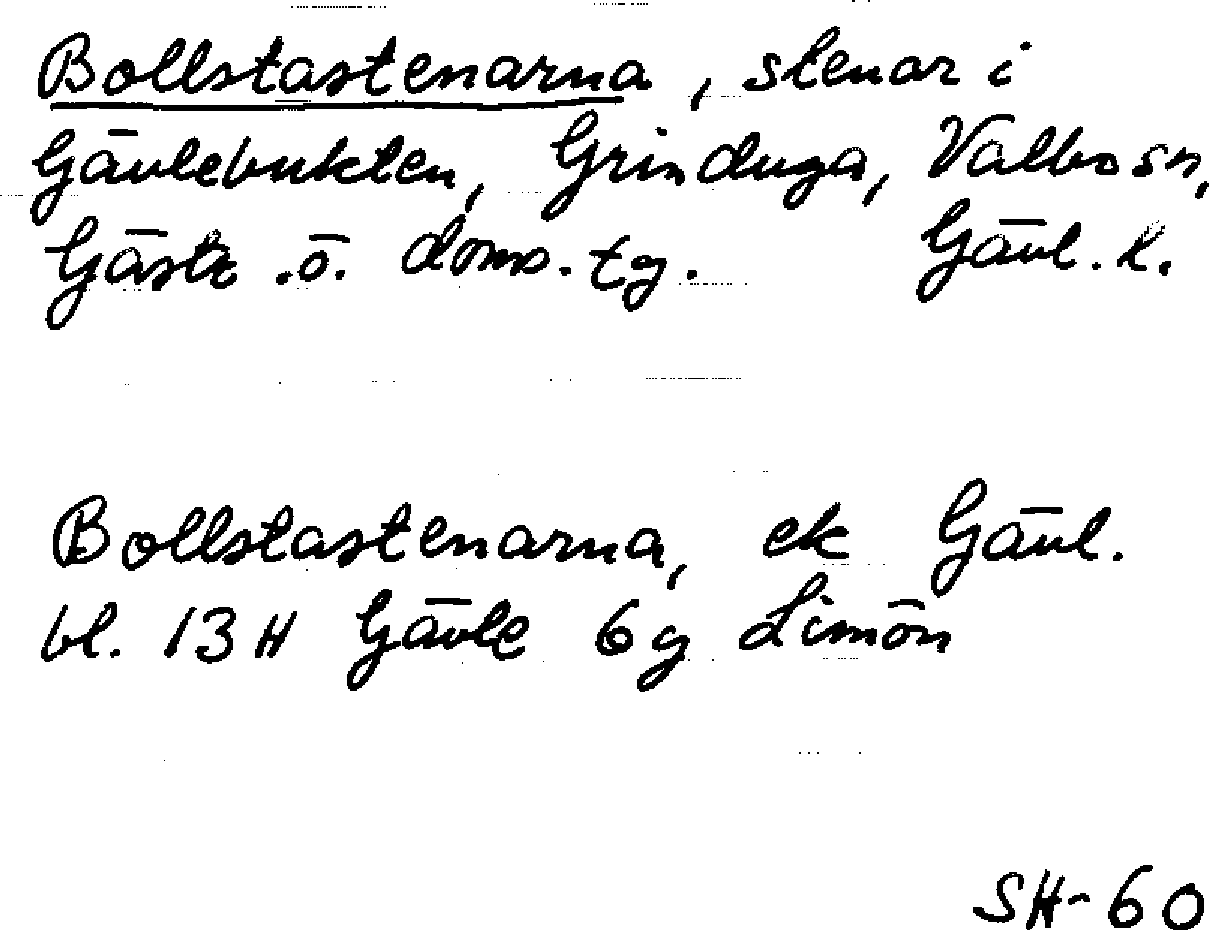 Bollstastenarna, stenar i
Gävlebukten, Grinduga, Valbo sn,
Gästr.ö. doms.tg. Gävl. l.
Bollstastenarna, ek Gävl.
bl. 13H Gävle 6g Limön
SH-60